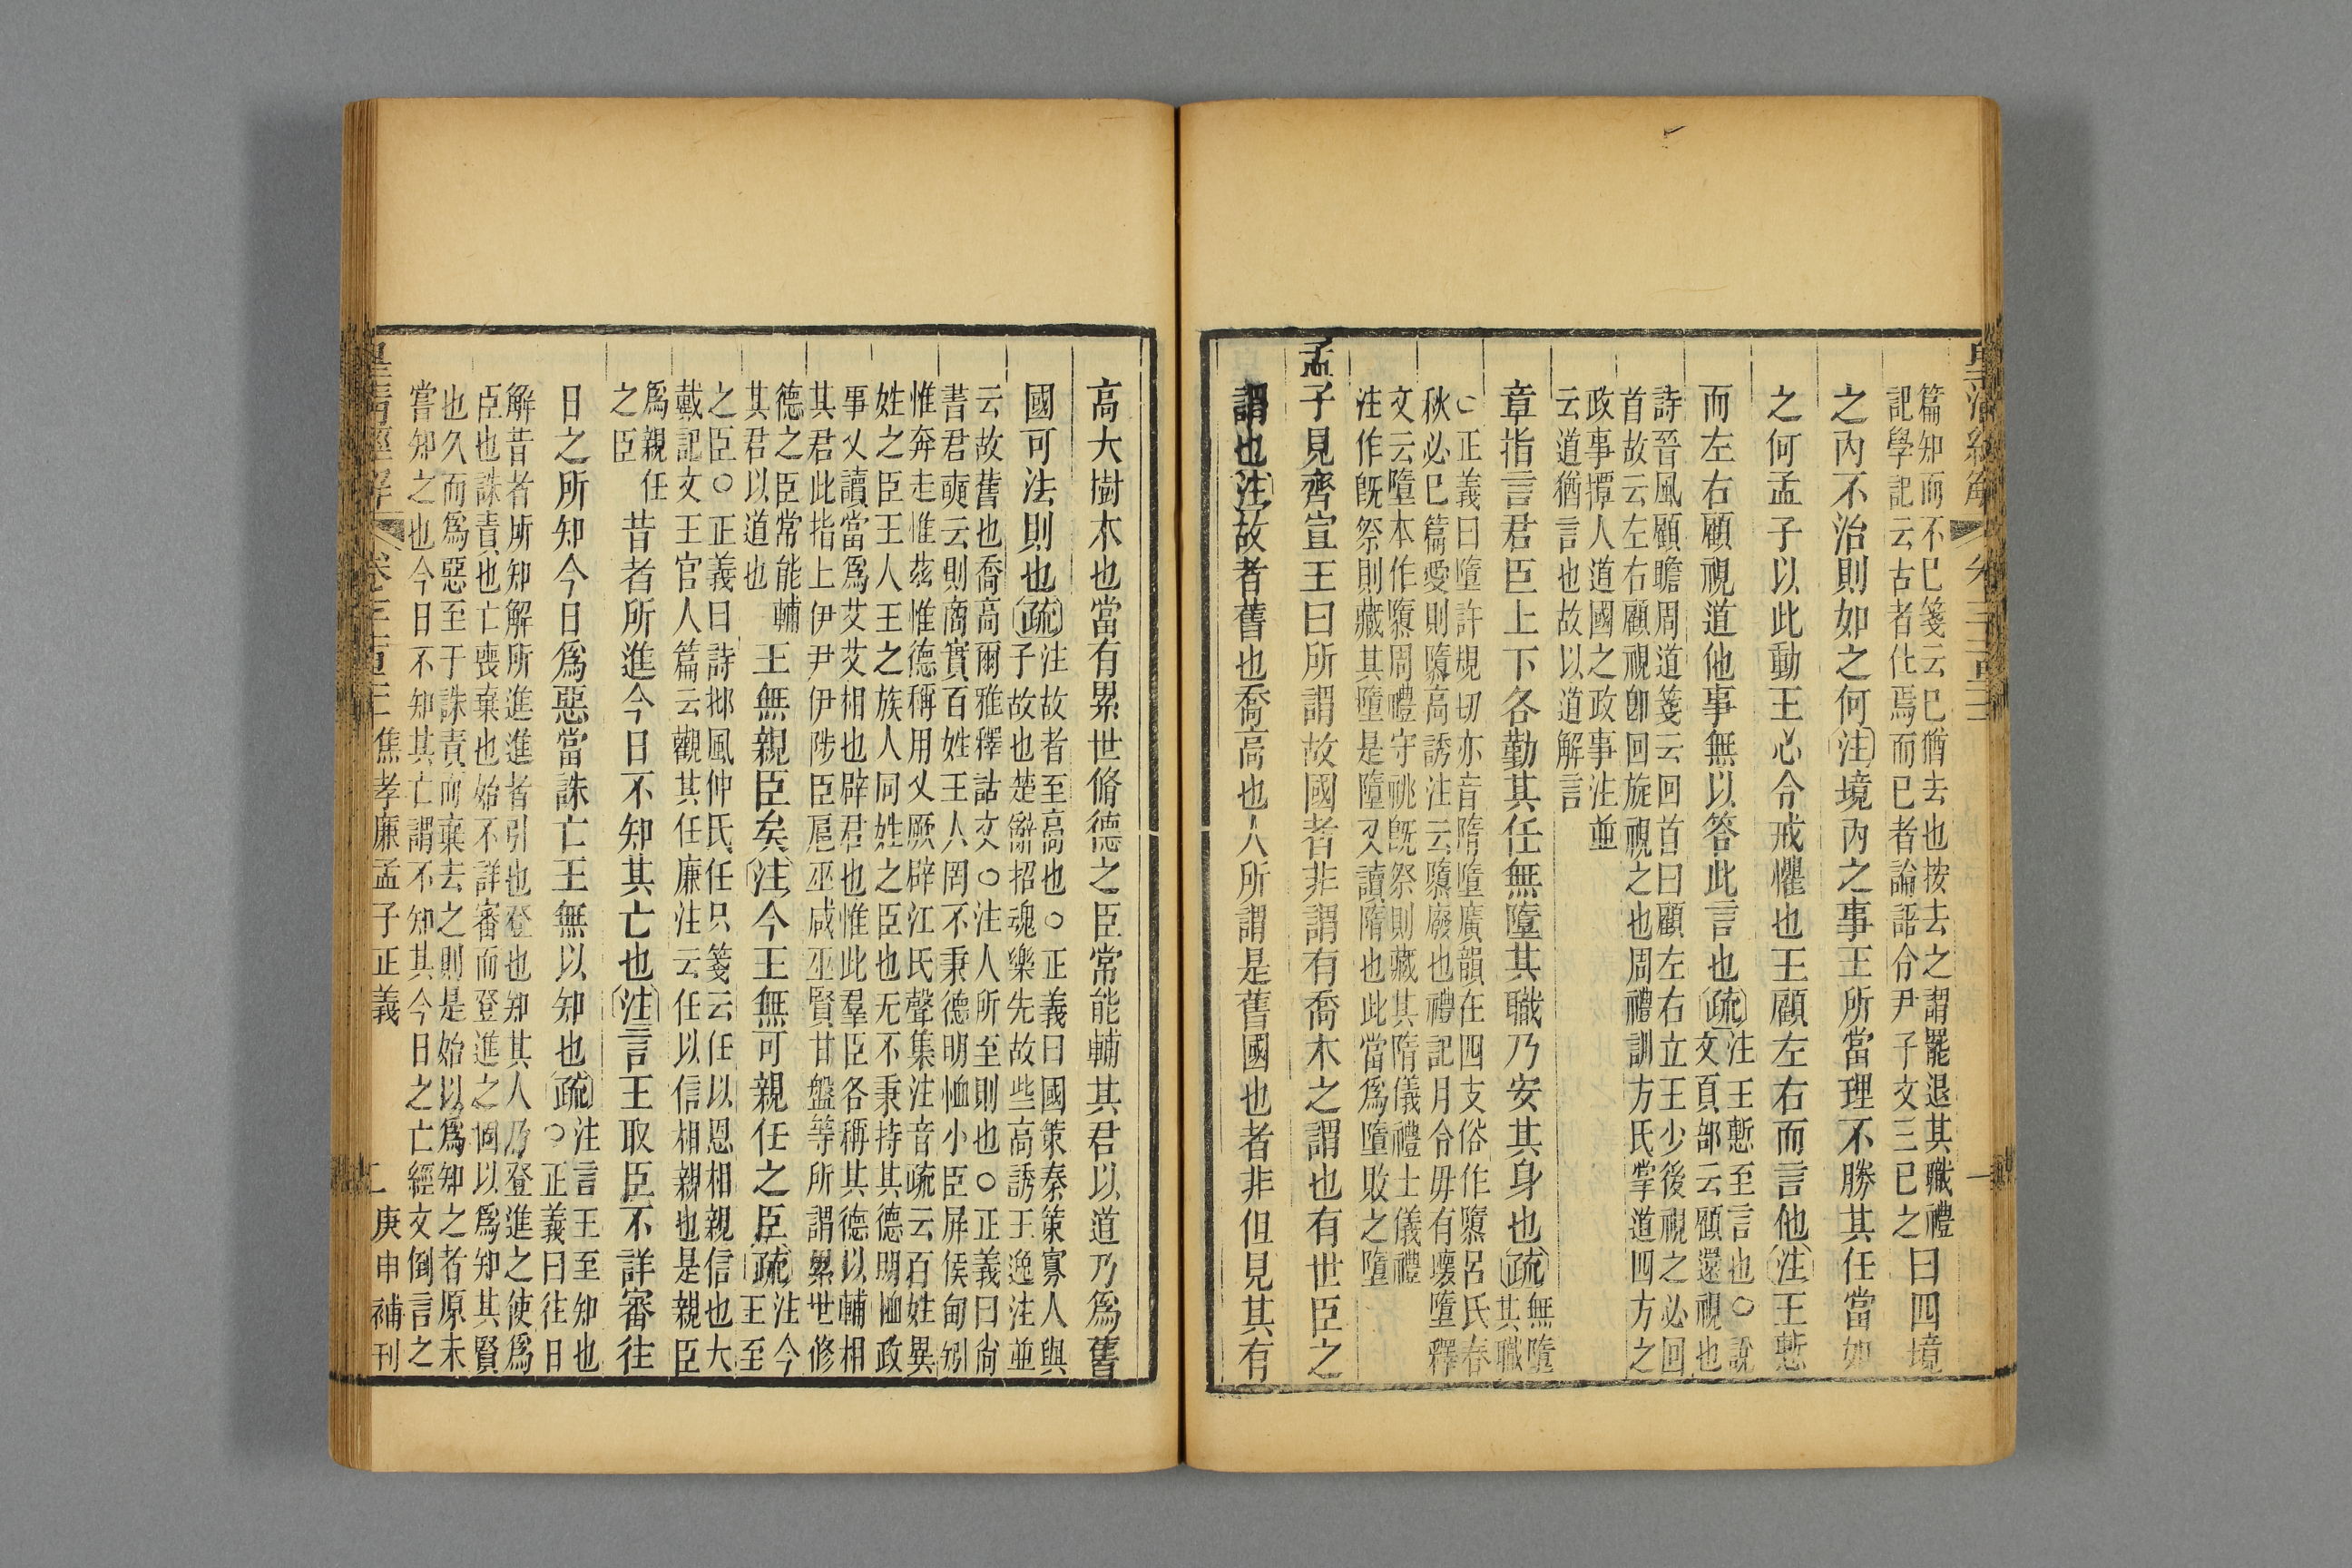 皇清經解
篇知而不已箋云已猶去也按去之謂罷退其職禮
記學記云古者仕焉而已者論語令尹子文三已之
曰四境
之內不治則如之何注境內之事王所當理不勝其任當如
之何孟子以此動王心令戒懼也王顧左右而言他注王慙
而左右顧視道他事無以答此言也疏
注王慙至言也○說
文頁部云顧還視也
詩晉風顧瞻周道箋云回首曰顧左右立王少後視之必回
首故云左右顧視卽回旋視之也周禮訓方氏掌道四方之
政事撢人道國之政事注並
云道猶言也故以道解言
章指言君臣上下各勤其任無墮其職乃安其身也疏
無墮
其職
○正義曰墮許規切亦音隋墮廣韻在四支俗作隳呂氏春
秋必已篇愛則隳高誘注云隳廢也禮記月令毋有壞墮釋
文云墮本作隳周禮守祧既祭則藏其隋儀禮士儀禮
注作既祭則藏其墮是墮又讀隋也此當爲墮敗之墮
孟子見齊宣王曰所謂故國者非謂有喬木之謂也有世臣之
謂也注故者舊也喬高也人所謂是舊國也者非但見其有
高大樹木也當有累世脩德之臣常能輔其君以道乃爲舊
國可法則也疏
注故者至高也○正義曰國策秦策寡人與
子故也楚辭招魂樂先故些高誘王逸注並
云故舊也喬高爾雅釋詁文○注人所至則也○正義曰尙
書君奭云則商實百姓王人罔不秉德明恤小臣屏侯甸矧
惟奔走惟茲惟德稱用乂厥辟江氏聲集注音疏云百姓異
姓之臣王人王之族人同姓之臣也无不秉持其德明恤政
事乂讀當爲艾艾相也辟君也惟此羣臣各稱其德以輔相
其君此指上伊尹伊陟臣扈巫咸巫賢甘盤等所謂累世修
德之臣常能輔
其君以道也
王無親臣矣注今王無可親任之臣疏
注今
王至
之臣○正義曰詩邶風仲氏任只箋云任以恩相親信也大
戴記文王官人篇云觀其任廉注云任以信相親也是親臣
爲親任
之臣
昔者所進今日不知其亡也注言王取臣不詳審往
日之所知今日爲惡當誅亡王無以知也疏
注言王至知也
○正義曰往日
解昔者所知解所進進者引也登也知其人乃登進之使爲
臣也誅責也亡喪棄也始不詳審而登進之個以爲知其賢
也久而爲惡至于誅責而棄去之則是始以爲知之者原未
嘗知之也今日不知其亡謂不知其今日之亡經文倒言之
皇清經解
焦孝廉孟子正義
二
庚申補刊